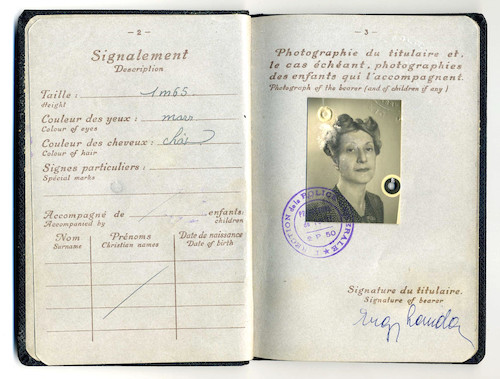 - 2 -
Signalement
Description
Taille: 1m65
Height
Couleur des yeux: marr
Colour of eyes
Couleur des cheveux: châ
Colour of hair
Signes particuliers:
Special marks
Accompagné de enfants:
Accompanied by children
Nom Prénoms Date de naissance
Surname Christian names Date of birth
- 3 -
Photographie du titulaire et,
le cas échéant, photographies
des enfants qui l'accompagnent.
Photograph of the bearer (and of children if any)
DIRECTION de la POLICE
Signature du titulaire.
Signature of bearer